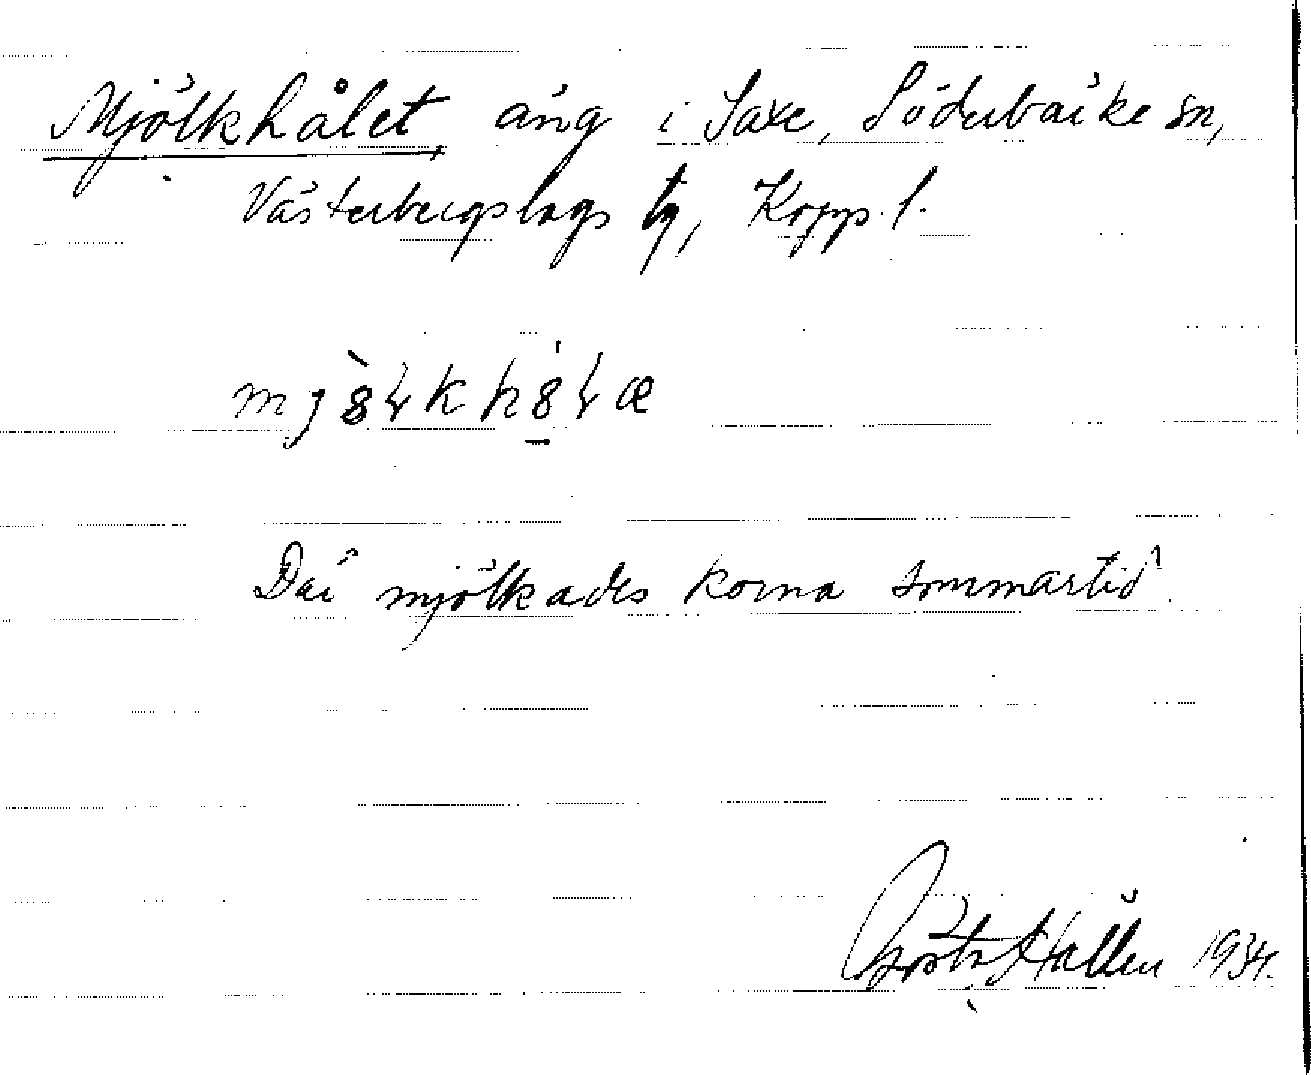 Mjölkhålet, äng i Saxe, Söderbärke sn,
Västerbergslags tg, Kopp. l.
mj8̀ɫkh8̱́ɫæ
Där mjölkades korna sommartid.
Gösta Hallén 1934.